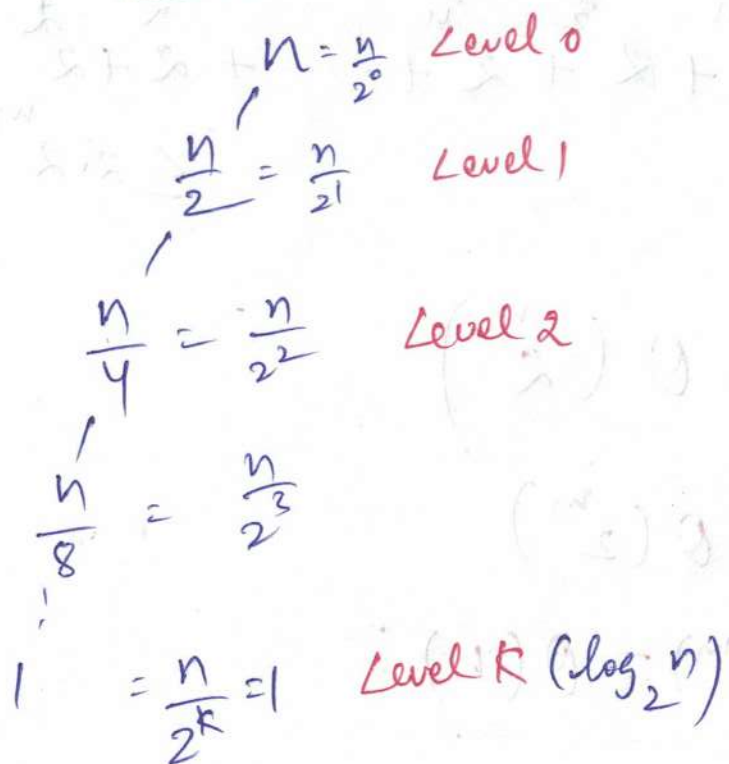 n = n/2⁰ Level 0
n/2 = n/2¹ Level 1
n/4 = n/2² Level 2
n/8 = n/2³
⋮
1 = n/2ᴷ = 1 Level K (log₂ n)